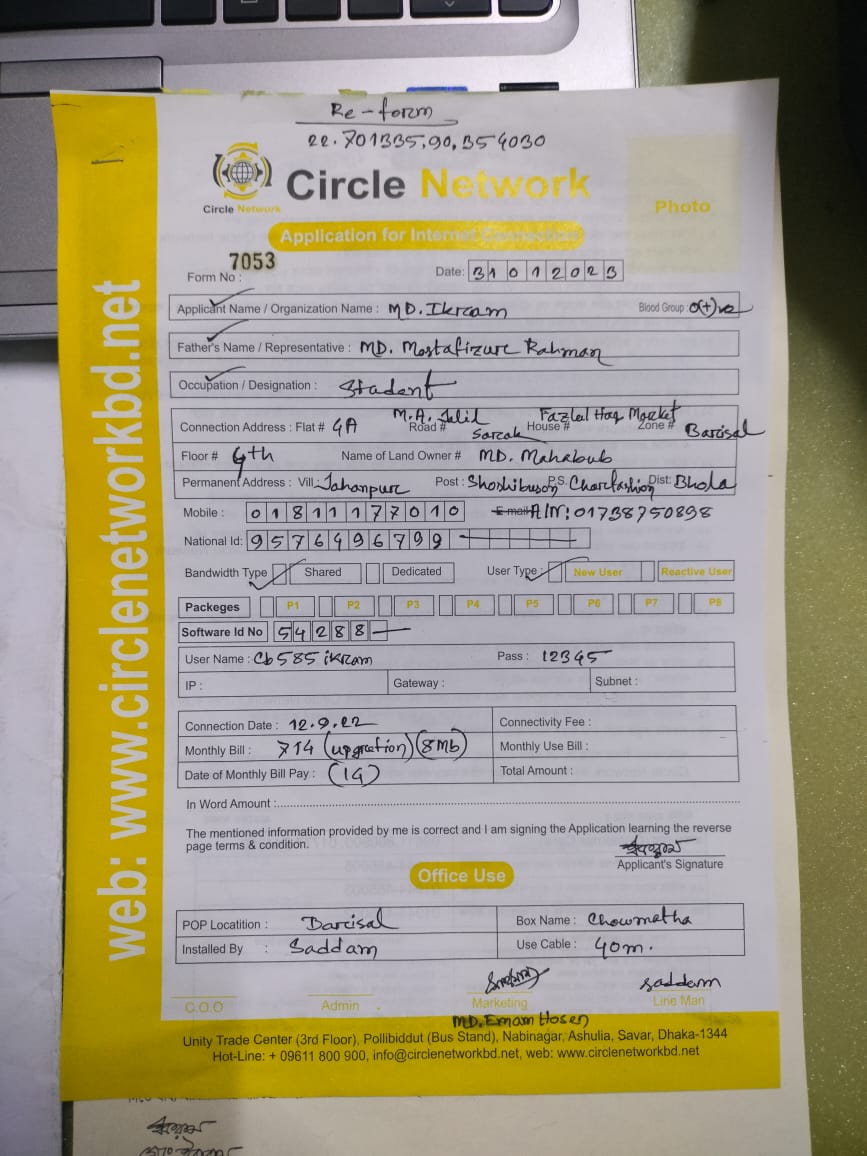 Re-form
22.701335,90,354030
Circle Network
Circle Network
Photo
Application for Internet Connection
7053
Form No :
Date: 31012023
Applicant Name / Organization Name : MD. Ikram
Blood Group : O(+)ve
Father's Name / Representative : MD. Mostafizure Rahman
Occupation / Designation : Student
Connection Address : Flat # 4A Road # M.A. Jalil Sarcak House # Fazlal Haq Market Zone # Barisal
Floor # 4th Name of Land Owner # MD. Mahabub
Permanent Address : Vill: Jahanpure Post : Shoshibuson P.S. Charfashion Dist: Bhola
Mobile : 01811177010 E-mail A/N: 01738750898
National Id: 9576496799
Bandwidth Type Shared Dedicated User Type : New User Reactive User
Packeges P1 P2 P3 P4 P5 P6 P7 P8
Software Id No 54288
User Name : Cb585ikram Pass : 12345
IP : Gateway : Subnet :
Connection Date : 12.9.22 Connectivity Fee :
Monthly Bill : 714 (upgretion) (8Mb) Monthly Use Bill :
Date of Monthly Bill Pay : (14) Total Amount :
In Word Amount :
The mentioned information provided by me is correct and I am signing the Application learning the reverse
page terms & condition.
Applicant's Signature
Office Use
POP Locatition : Barisal Box Name : Chowmatha
Installed By : Saddam Use Cable : 40m.
saddam
C.O.O Admin Marketing Line Man
MD. Emam Hosen
Unity Trade Center (3rd Floor), Pollibiddut (Bus Stand), Nabinagar, Ashulia, Savar, Dhaka-1344
Hot-Line: + 09611 800 900, info@circlenetworkbd.net, web: www.circlenetworkbd.net
web: www.circlenetworkbd.net